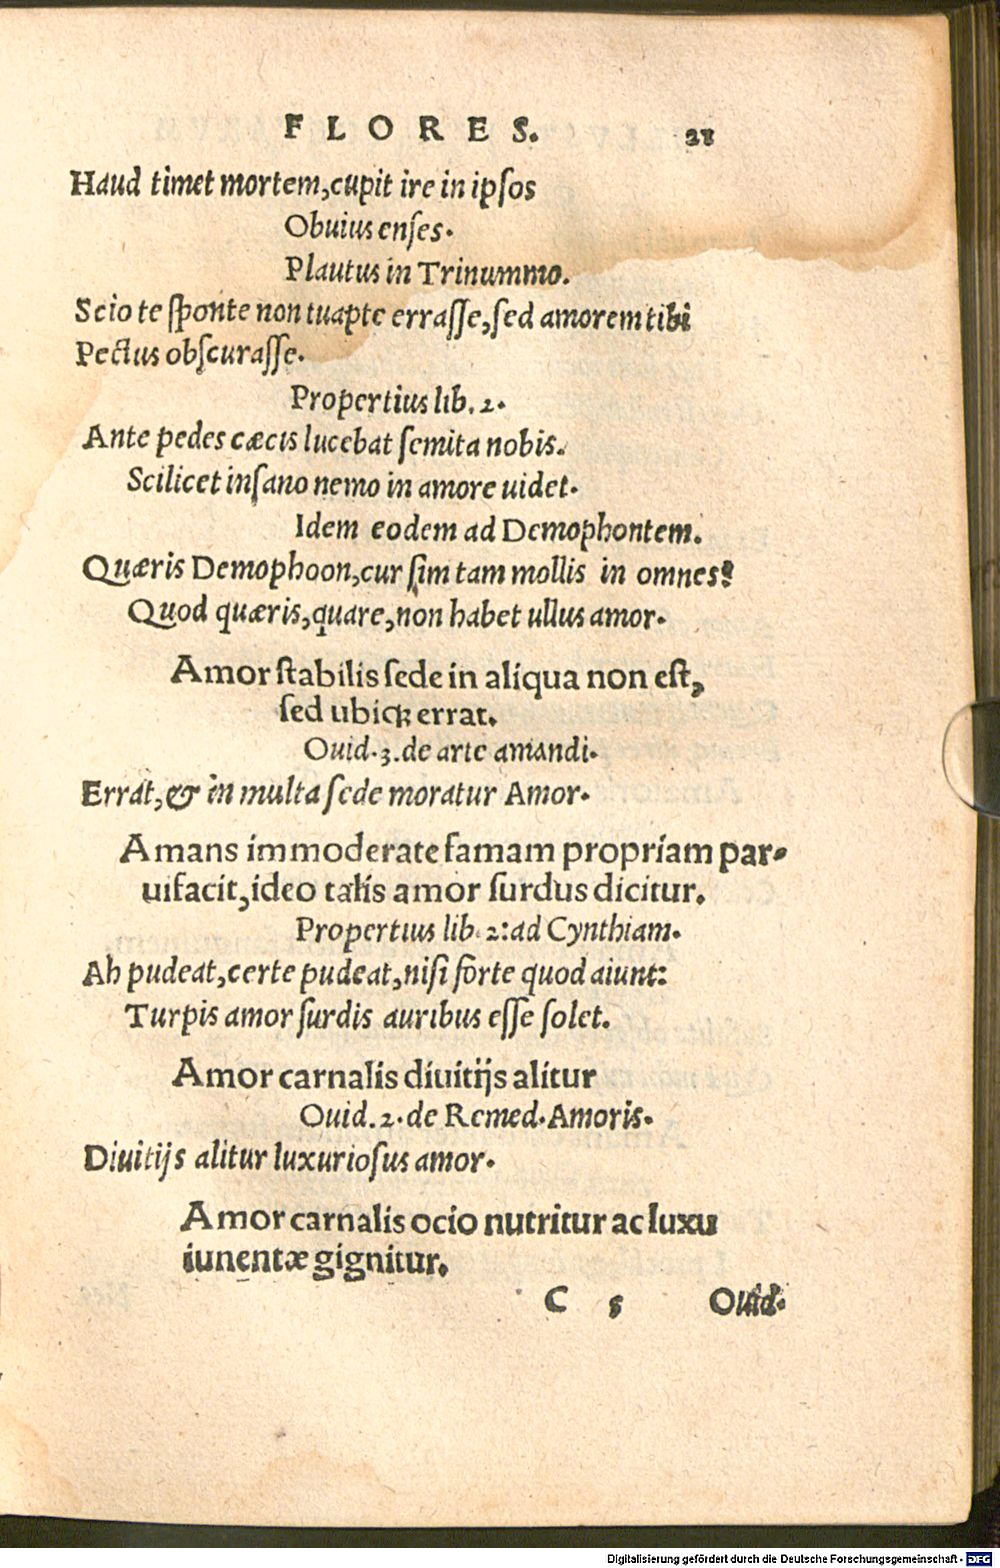 FLORES. 21
Haud timet mortem, cupit ire in ipſos
Obuius enſes.
Plautus in Trinummo.
Scio te ſponte non tuapte erraſſe, ſed amorem tibi
Pectus obſcuraſſe.
Propertius lib. 2.
Ante pedes cæcis lucebat ſemita nobis.
Scilicet inſano nemo in amore uidet.
Idem eodem ad Demophontem.
Quæris Demophoon, cur ſim tam mollis in omnes?
Quod quæris, quare, non habet ullus amor.
Amor ſtabilis ſede in aliqua non eſt,
ſed ubiqꝫ errat.
Ouid. 3. de arte amandi.
Errat, & in multa ſede moratur Amor.
Amans immoderate famam propriam par-
uifacit, ideo talis amor ſurdus dicitur.
Propertius lib. 2: ad Cynthiam.
Ah pudeat, certe pudeat, niſi forte quod aiunt:
Turpis amor ſurdis auribus eſſe ſolet.
Amor carnalis diuitijs alitur
Ouid. 2. de Remed. Amoris.
Diuitijs alitur luxurioſus amor.
Amor carnalis ocio nutritur ac luxu
iuuentæ gignitur.
C 5 Ouid.
Digitalisierung gefördert durch die Deutsche Forschungsgemeinschaft - DFG